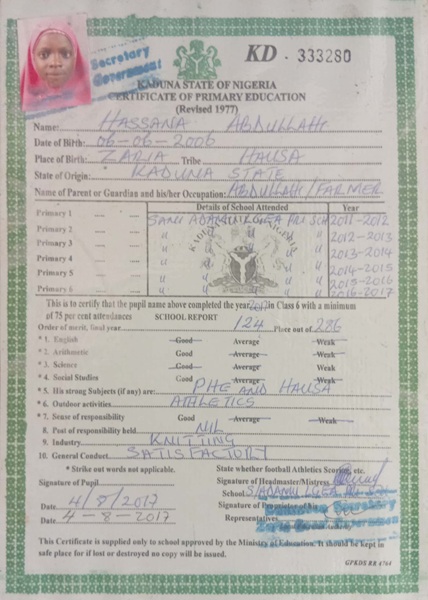 Secretary
Government
KD . 333280
KADUNA STATE OF NIGERIA
CERTIFICATE OF PRIMARY EDUCATION
(Revised 1977)
Name: HASSANA ABDULLAHI
Date of Birth: 06-06-2006
Place of Birth: ZARIA Tribe HAUSA
State of Origin: KADUNA STATE
Name of Parent or Guardian and his/her Occupation: ABDULLAHI/FARMER
Details of School Attended Year
Primary 1 SANI ADAMU LGEA PRI SCH 2011-2012
Primary 2 " " " " 2012-2013
Primary 3 " " " " 2013-2014
Primary 4 " " " " 2014-2015
Primary 5 " " " " 2015-2016
Primary 6 " " " " 2016-2017
This is to certify that the pupil name above completed the year 2017 in Class 6 with a minimum
of 75 per cent attendances SCHOOL REPORT
Order of merit, final year 124 Place out of 286
* 1. English Good Average Weak
* 2. Arithmetic Good Average Weak
* 3. Science Good Average Weak
* 4. Social Studies Good Average Weak
* 5. His strong Subjects (if any) are: PHE AND HAUSA
* 6. Outdoor activities: ATHLETICS
* 7. Sense of responsibility Good Average Weak
8. Post of responsibility held NIL
9. Industry KNITTING
10. General Conduct SATISFACTORY
* Strike out words not applicable. State whether football Athletics Scoring, etc.
Signature of Pupil Signature of Headmaster/Mistress
School S/ADAMU LGEA
Date 4/8/2017 Signature of
Date 4-8-2017 Representatives
Secretary
Government
This Certificate is supplied only to school approved by the Ministry of Education. It should be kept in
safe place for if lost or destroyed no copy will be issued.
GPKDS RB 4764